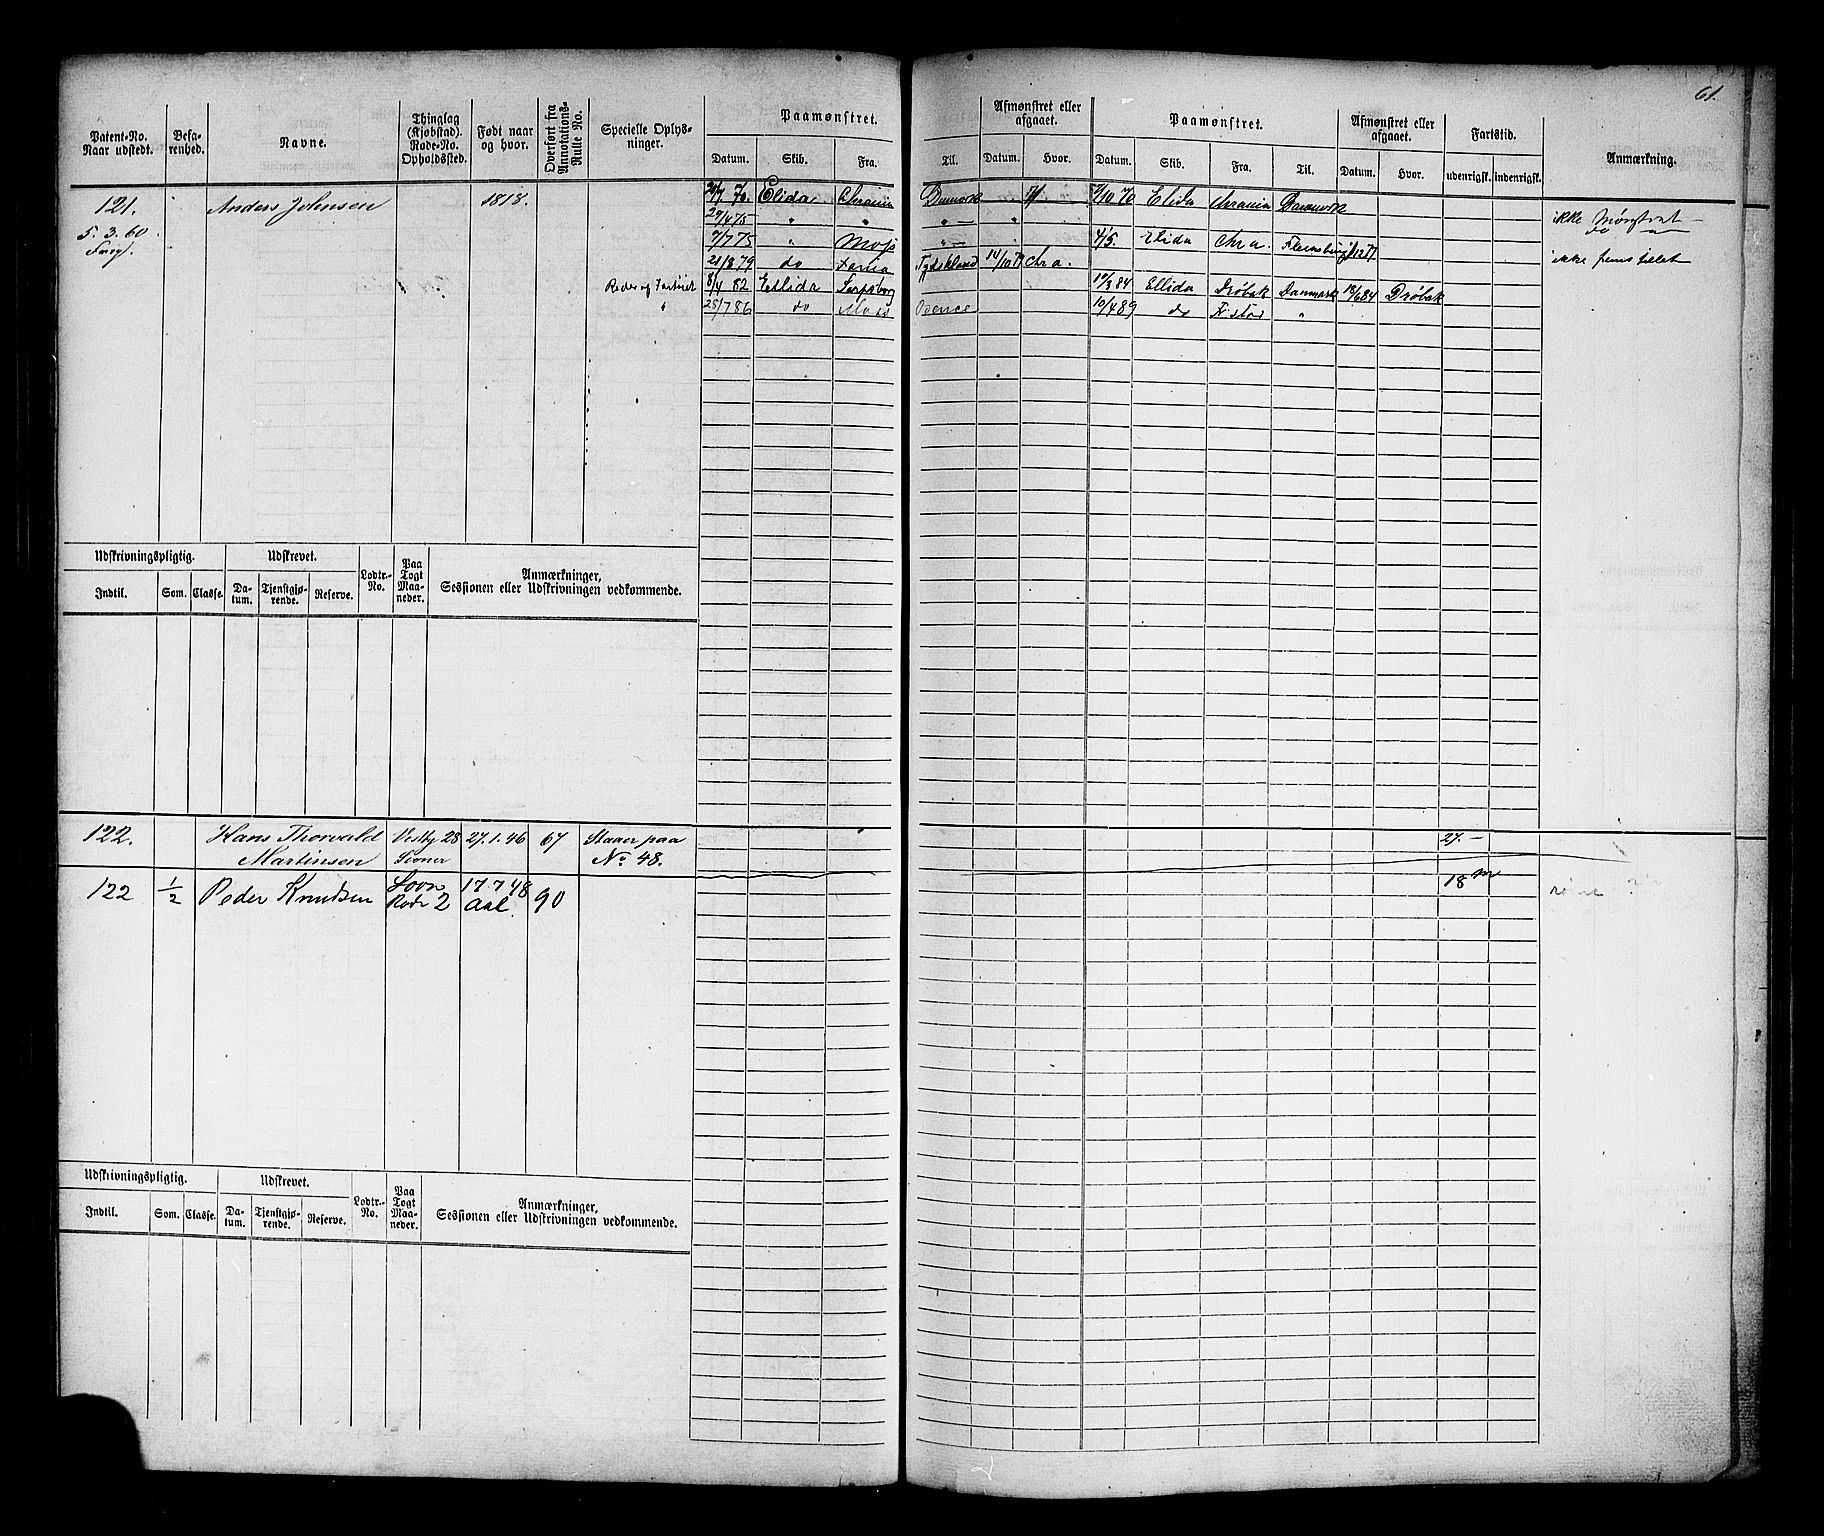 61.
Patent-No. Naar udstedt. Befa-renhed. Navne. Thinglag (Kjøbstad). Rode-No. Opholdssted. Født naar og hvor. Overført fra Annotations-Rulle No. Specielle Oplys-ninger. Paamønstret. Afmønstret eller afgaaet. Paamønstret. Afmønstret eller afgaaet. Fartstid. Anmærkning.
Datum. Skib. Fra. Til. Datum. Hvor. Datum. Skib. Fra. Til. Datum. Hvor. udenrigsk. indenrigsk.
121. Anders Johnsen 1818. Elida Chrania Danmark 9/10 70 Elida Chrania Danmark
5.3.60 29/4 75 " " " — " ikke Mønstret —
7/7 75 " Moss " — 4/5 Elida Chra. Flensburg
21/8 79 do Tydskland 14/10 79 Chra. ikke fremstillet
Reder af Fartøiet 8/4 82 Ellida Sarpsborg 17/3 84 Ellida Drøbak Danmark 18/6 84 Drøbak
" 25/7 86 do Moss 10/4 89 do Fr.stad "
Udskrivningspligtig. Udskrevet. Lodtr.-No. Paa Togt Maa-neder. Anmærkninger, Sessionen eller Udskrivningen vedkommende.
Indtil. Som. Classe. Da-tum. Tjenstgjø-rende. Reserve.
122. Hans Thorvald Vestby 28 27.1.46 67 Staaer paa 27. —
Martinsen No. 48.
122 1/2 Peder Knudsen 17 7 48 90 18 m
Rode 2 Aal.
Udskrivningspligtig. Udskrevet. Lodtr.-No. Paa Togt Maa-neder. Anmærkninger, Sessionen eller Udskrivningen vedkommende.
Indtil. Som. Classe. Da-tum. Tjenstgjø-rende. Reserve.